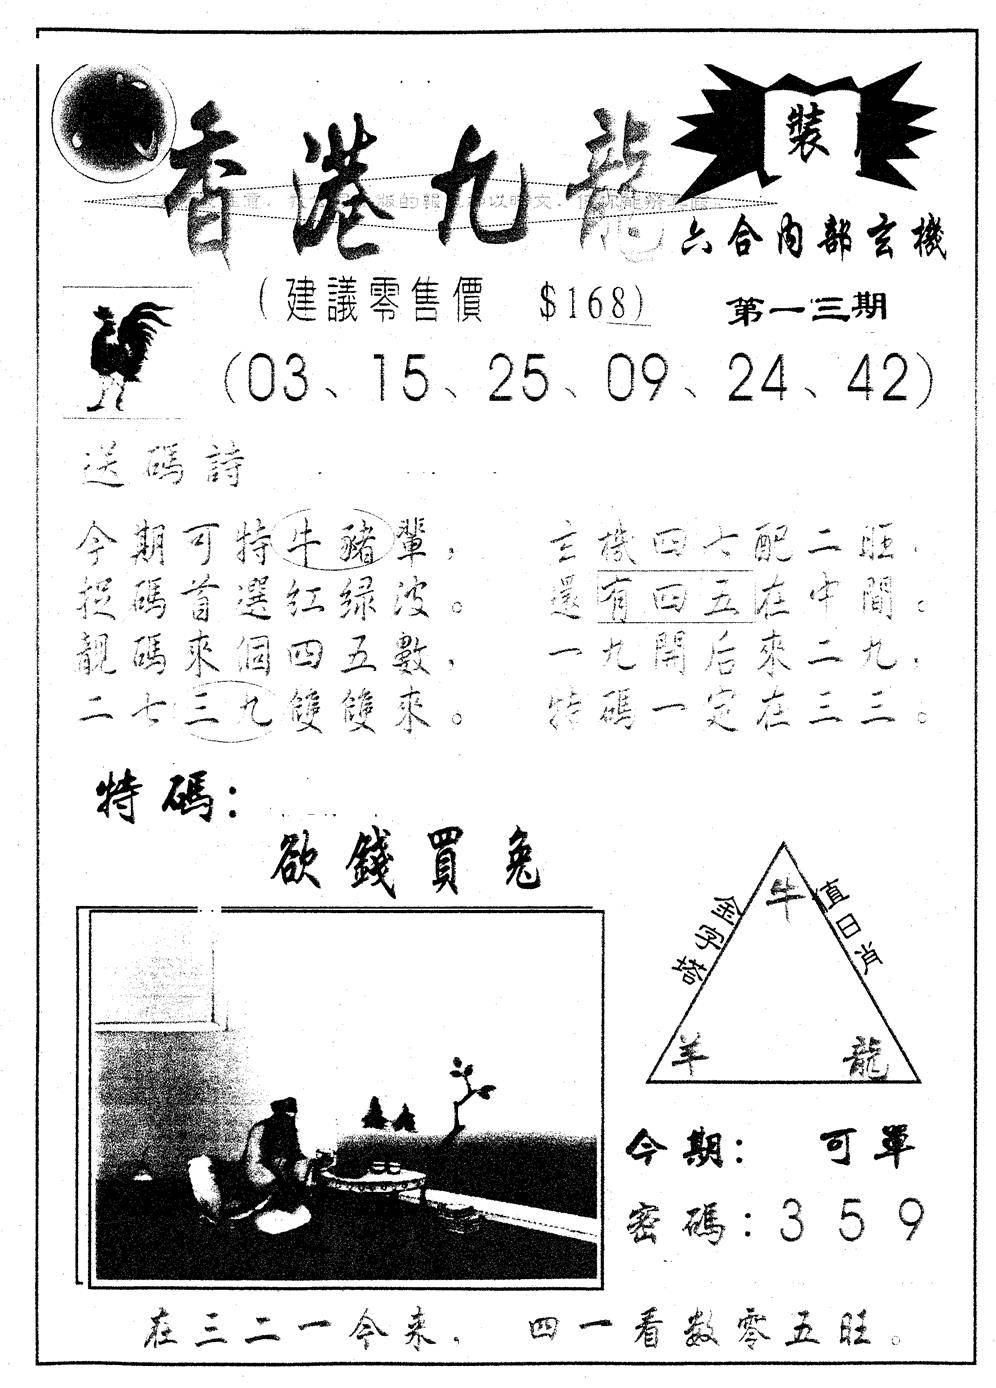 香港九龍
裝
版的報
六合內部玄機
(建議零售價 $168)
第一三期
(03、15、25、09、24、42)
送碼詩
今期可特牛豬輩，
捉碼首選红绿波。
靚碼來個四五數，
二七三九雙雙來。
玄機四七配二旺，
還有四五在中間。
一九開后來二九，
特碼一定在三三。
特碼：
欲錢買兔
金字塔
牛
值日肖
羊
龍
今期： 可單
密碼：3 5 9
在三二一今来， 四一看数零五旺。